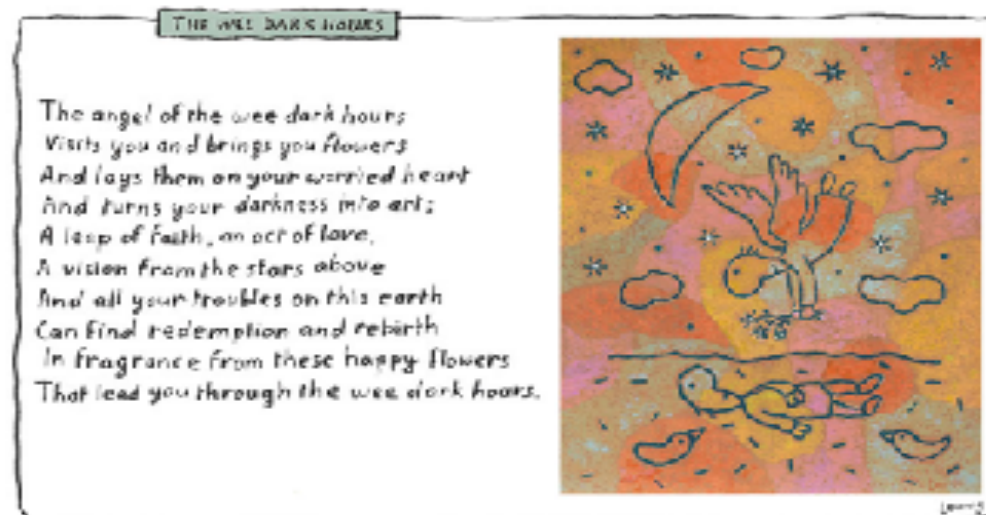 THE WEE DARK HOURS
The angel of the wee dark hours
Visits you and brings you flowers
And lays them on your worried heart
And turns your darkness into art;
A leap of faith, an act of love,
A vision from the stars above
And all your troubles on this earth
Can find redemption and rebirth
In fragrance from these happy flowers
That lead you through the wee dark hours.